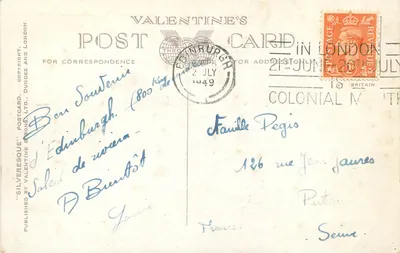 VALENTINE'S
POST CARD
FOR CORRESPONDENCE
FOR ADDRESS
"SILVERESQUE" POSTCARD. COPYRIGHT.
PUBLISHED BY VALENTINE & SONS, LTD., DUNDEE AND LONDON
EDINBURGH
2 JULY
1949
IN LONDON
21ST JUNE-20TH JULY
IS
COLONIAL MONTH
POSTAGE
REVENUE
BRITAIN
Bon Souvenir
d'Edimburgh. (800 Km de
Soleil de
A Bientôt
Famille Pegis
126 rue Jean Jaures
France
Seine